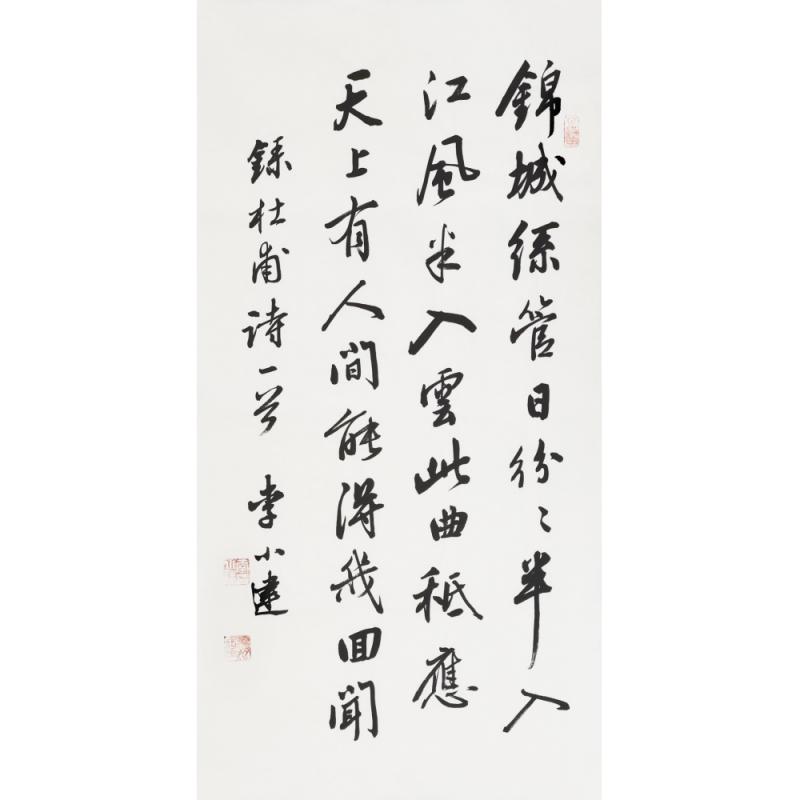 錦城絲管日紛〻半入
江風半入雲此曲秖應
天上有人間能得幾回聞
錄杜甫詩一首 李小